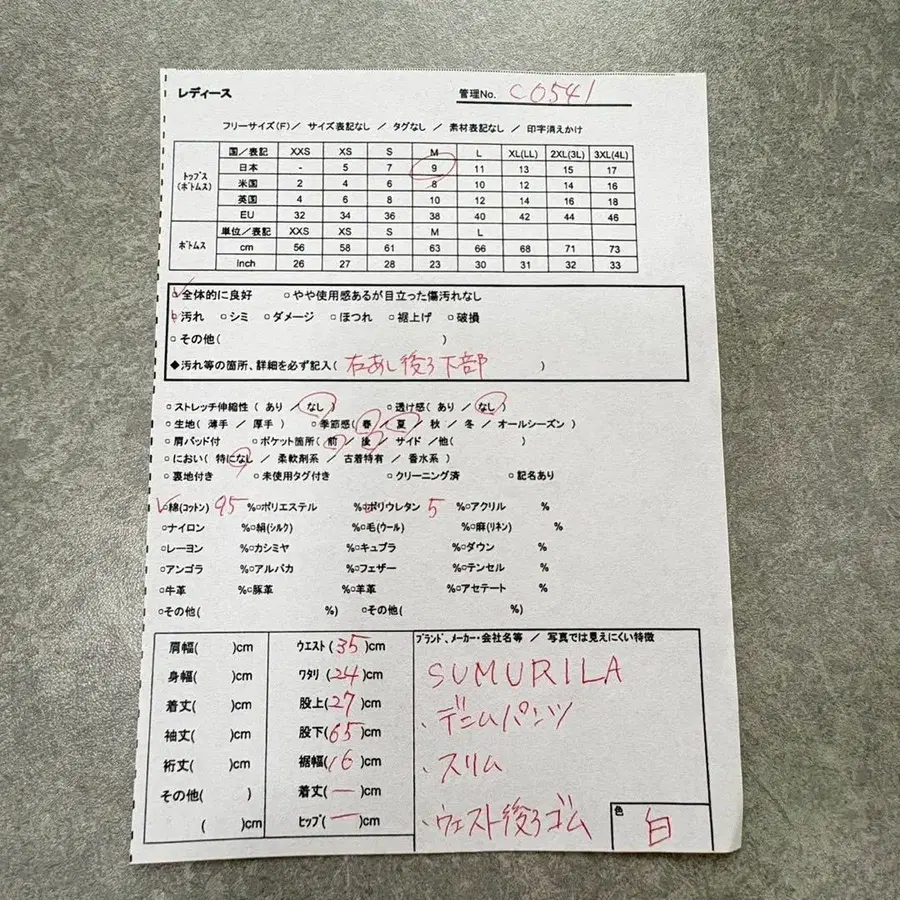 レディース
管理No. C0541
フリーサイズ(F)／ サイズ表記なし ／ タグなし ／ 素材表記なし ／ 印字消えかけ
国／表記 XXS XS S M L XL(LL) 2XL(3L) 3XL(4L)
トップス(ボトムス)
日本 - 5 7 9 11 13 15 17
米国 2 4 6 8 10 12 14 16
英国 4 6 8 10 12 14 16 18
EU 32 34 36 38 40 42 44 46
ボトムス
単位／表記 XXS XS S M L
cm 56 58 61 63 66 68 71 73
Inch 26 27 28 23 30 31 32 33
全体的に良好 ▫やや使用感あるが目立った傷汚れなし
汚れ ▫シミ ▫ダメージ ▫ほつれ ▫裾上げ ▫破損
▫その他( )
◆汚れ等の箇所、詳細を必ず記入( 右あし後ろ下部 )
▫ストレッチ伸縮性 ( あり ／ なし ) ▫透け感 ( あり ／ なし )
▫生地 ( 薄手 ／ 厚手 ) ▫季節感( 春 ／ 夏 ／ 秋 ／ 冬 ／ オールシーズン )
▫肩パッド付 ▫ポケット箇所( 前 ／ 後 ／ サイド ／他( )
▫におい ( 特になし ／ 柔軟剤系 ／ 古着特有 ／ 香水系 )
▫裏地付き ▫未使用タグ付き ▫クリーニング済 ▫記名あり
▫綿(コットン) 95 %▫ポリエステル %▫ポリウレタン 5 %▫アクリル %
▫ナイロン %▫絹(シルク) %▫毛(ウール) %▫麻(リネン) %
▫レーヨン %▫カシミヤ %▫キュプラ %▫ダウン %
▫アンゴラ %▫アルパカ %▫フェザー %▫テンセル %
▫牛革 %▫豚革 %▫羊革 %▫アセテート %
▫その他( %) ▫その他( %)
肩幅( )cm
身幅( )cm
着丈( )cm
袖丈( )cm
裄丈( )cm
その他( )
( )cm
ウエスト(35)cm
ワタリ(24)cm
股上(27)cm
股下(65)cm
裾幅(16)cm
着丈(ー)cm
ヒップ(ー)cm
ブランド、メーカー・会社名等 ／ 写真では見えにくい特徴
SUMURILA
・デニムパンツ
・スリム
・ウエスト後ろゴム
色
白